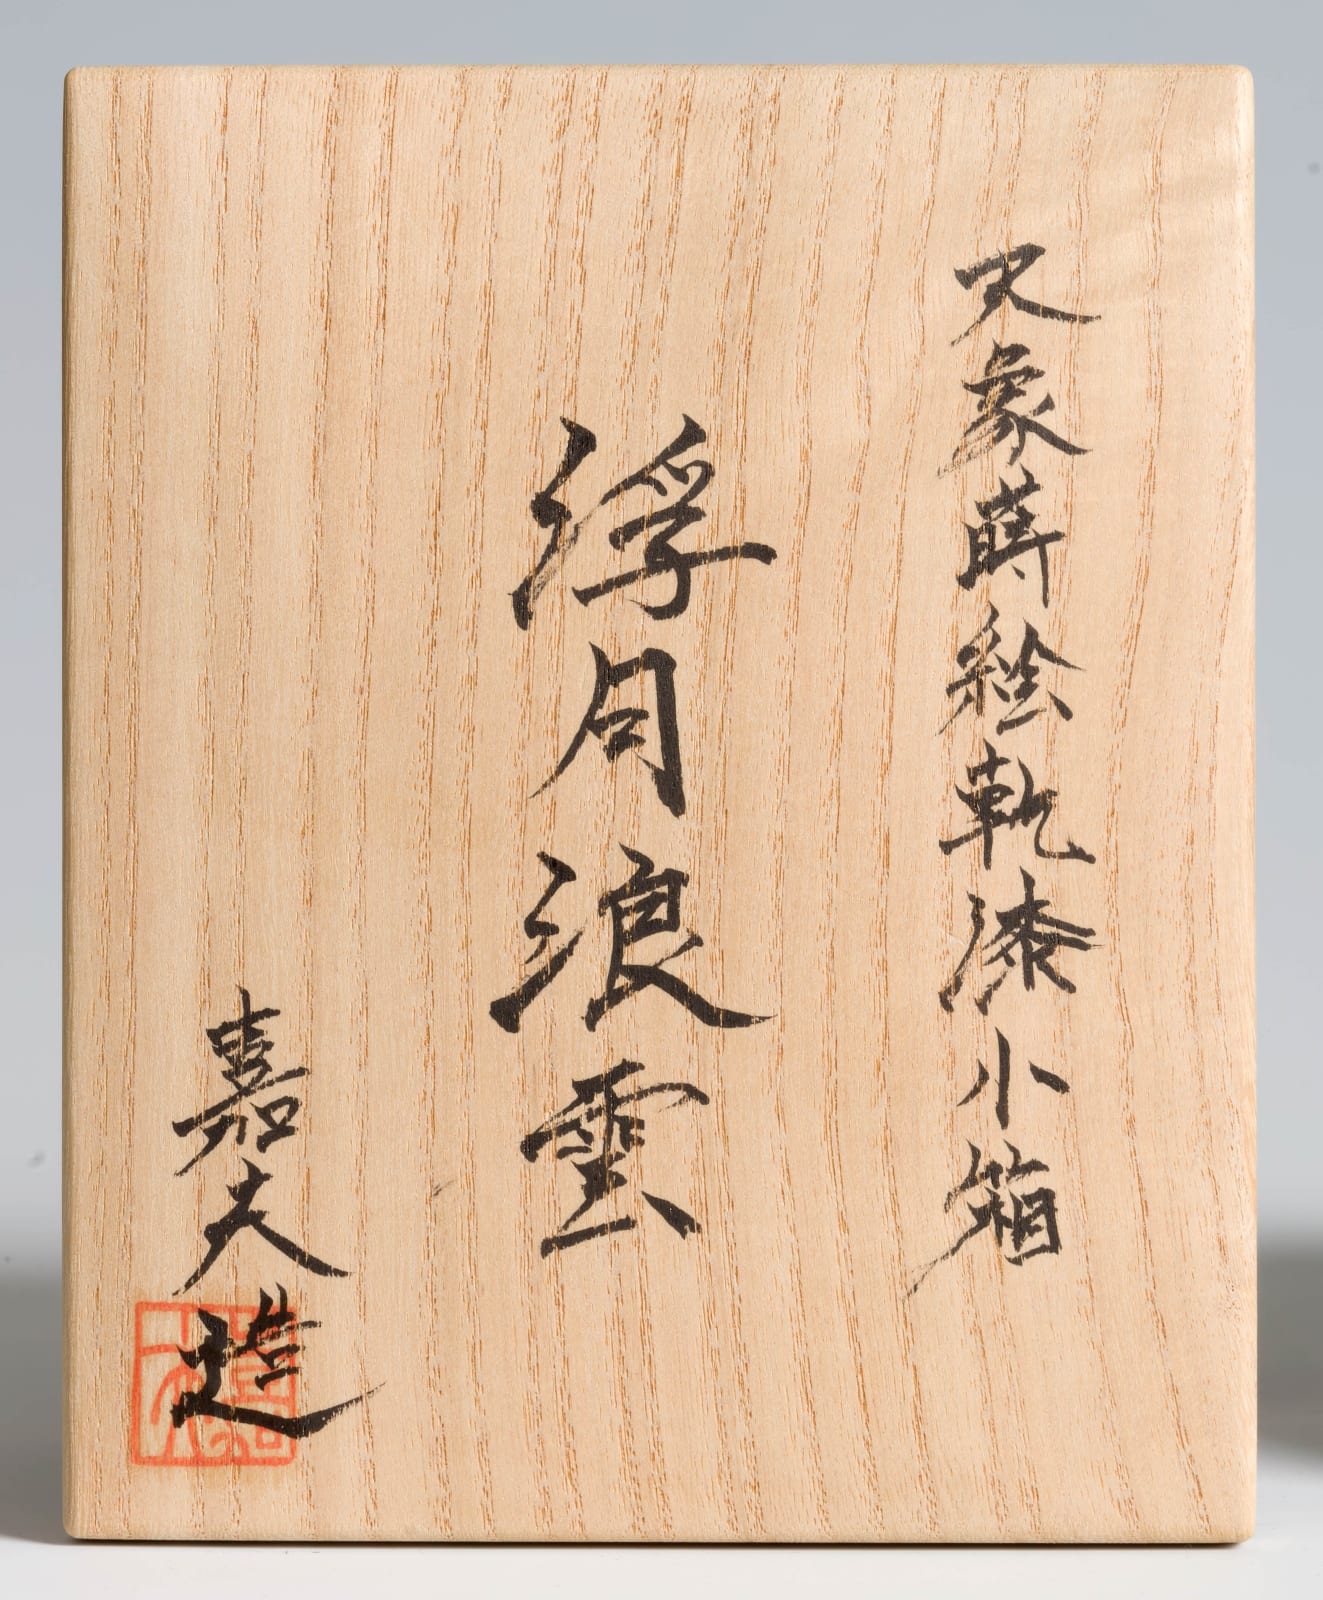 天象蒔絵乾漆小箱
浮月浪雲
嘉夫造